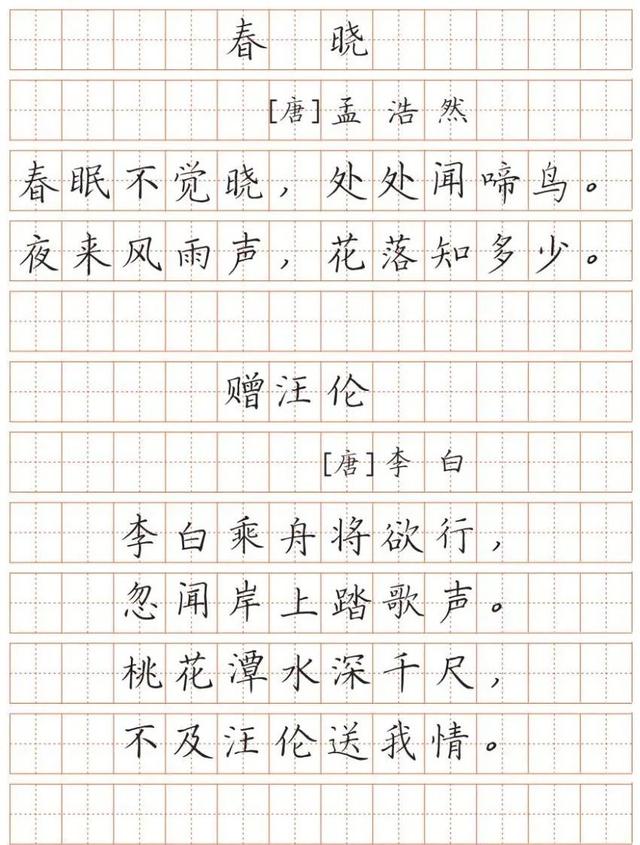 春 晓
[唐]孟浩然
春眠不觉晓，处处闻啼鸟。
夜来风雨声，花落知多少。
赠汪伦
[唐]李白
李白乘舟将欲行，
忽闻岸上踏歌声。
桃花潭水深千尺，
不及汪伦送我情。